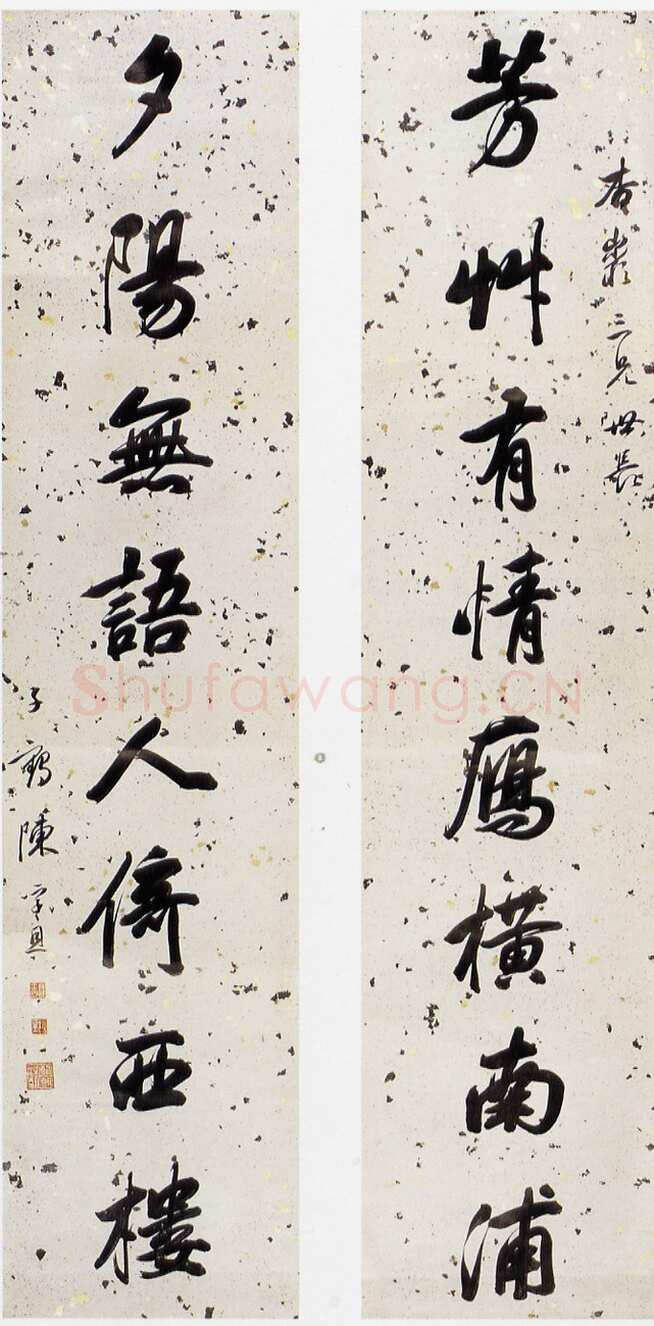 芳艸有情鴈橫南浦
杏叢三兄世長
夕陽無語人倚西樓
子鶴陳孚恩
Shufawang.CN